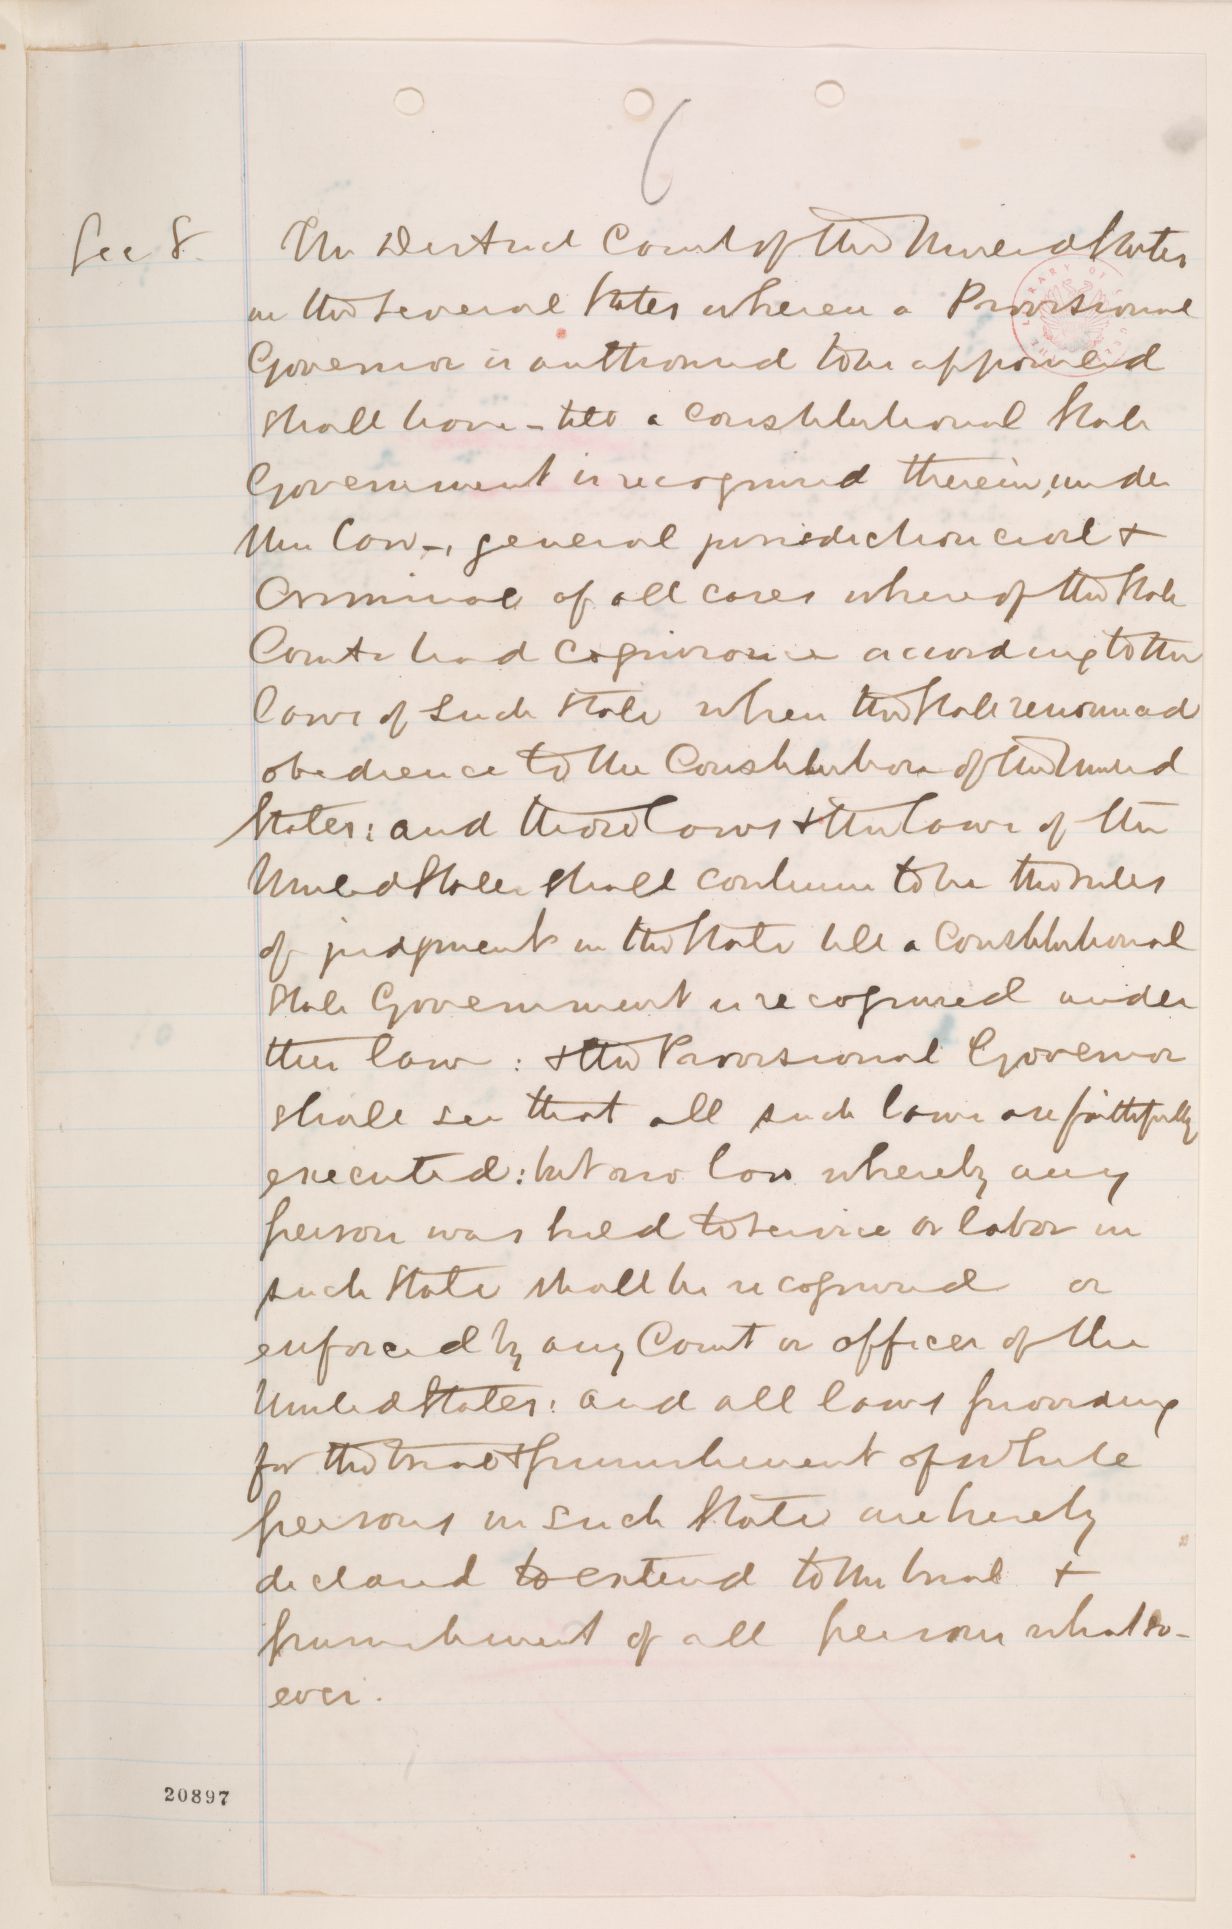 6
Sec 8. The District Court of the United States
in the several States wherein a Provisional
Governor is authorised to be appointed
shall have - till a constitutional State
Government is recognised therein, under
this law -, general jurisdiction civil +
Criminal of all cases whereof the State
Courts had cognizance according to the
laws of such State when the State renounced
obedience to the Constitution of the United
States: and those laws + the laws of the
United States shall continue to be the rules
of judgment in the State till a Constitutional
State Government is recognised under
this law : + the Provisional Governor
shall see that all such laws are faithfully
executed: but no law whereby any
person was held to service or labor in
such State shall be recognised or
enforced by any Court or officer of the
United States: and all laws providing
for the trial + punishment of white
persons in such State are hereby
declared to extend to the trial +
punishment of all persons whatso-
ever.
20897